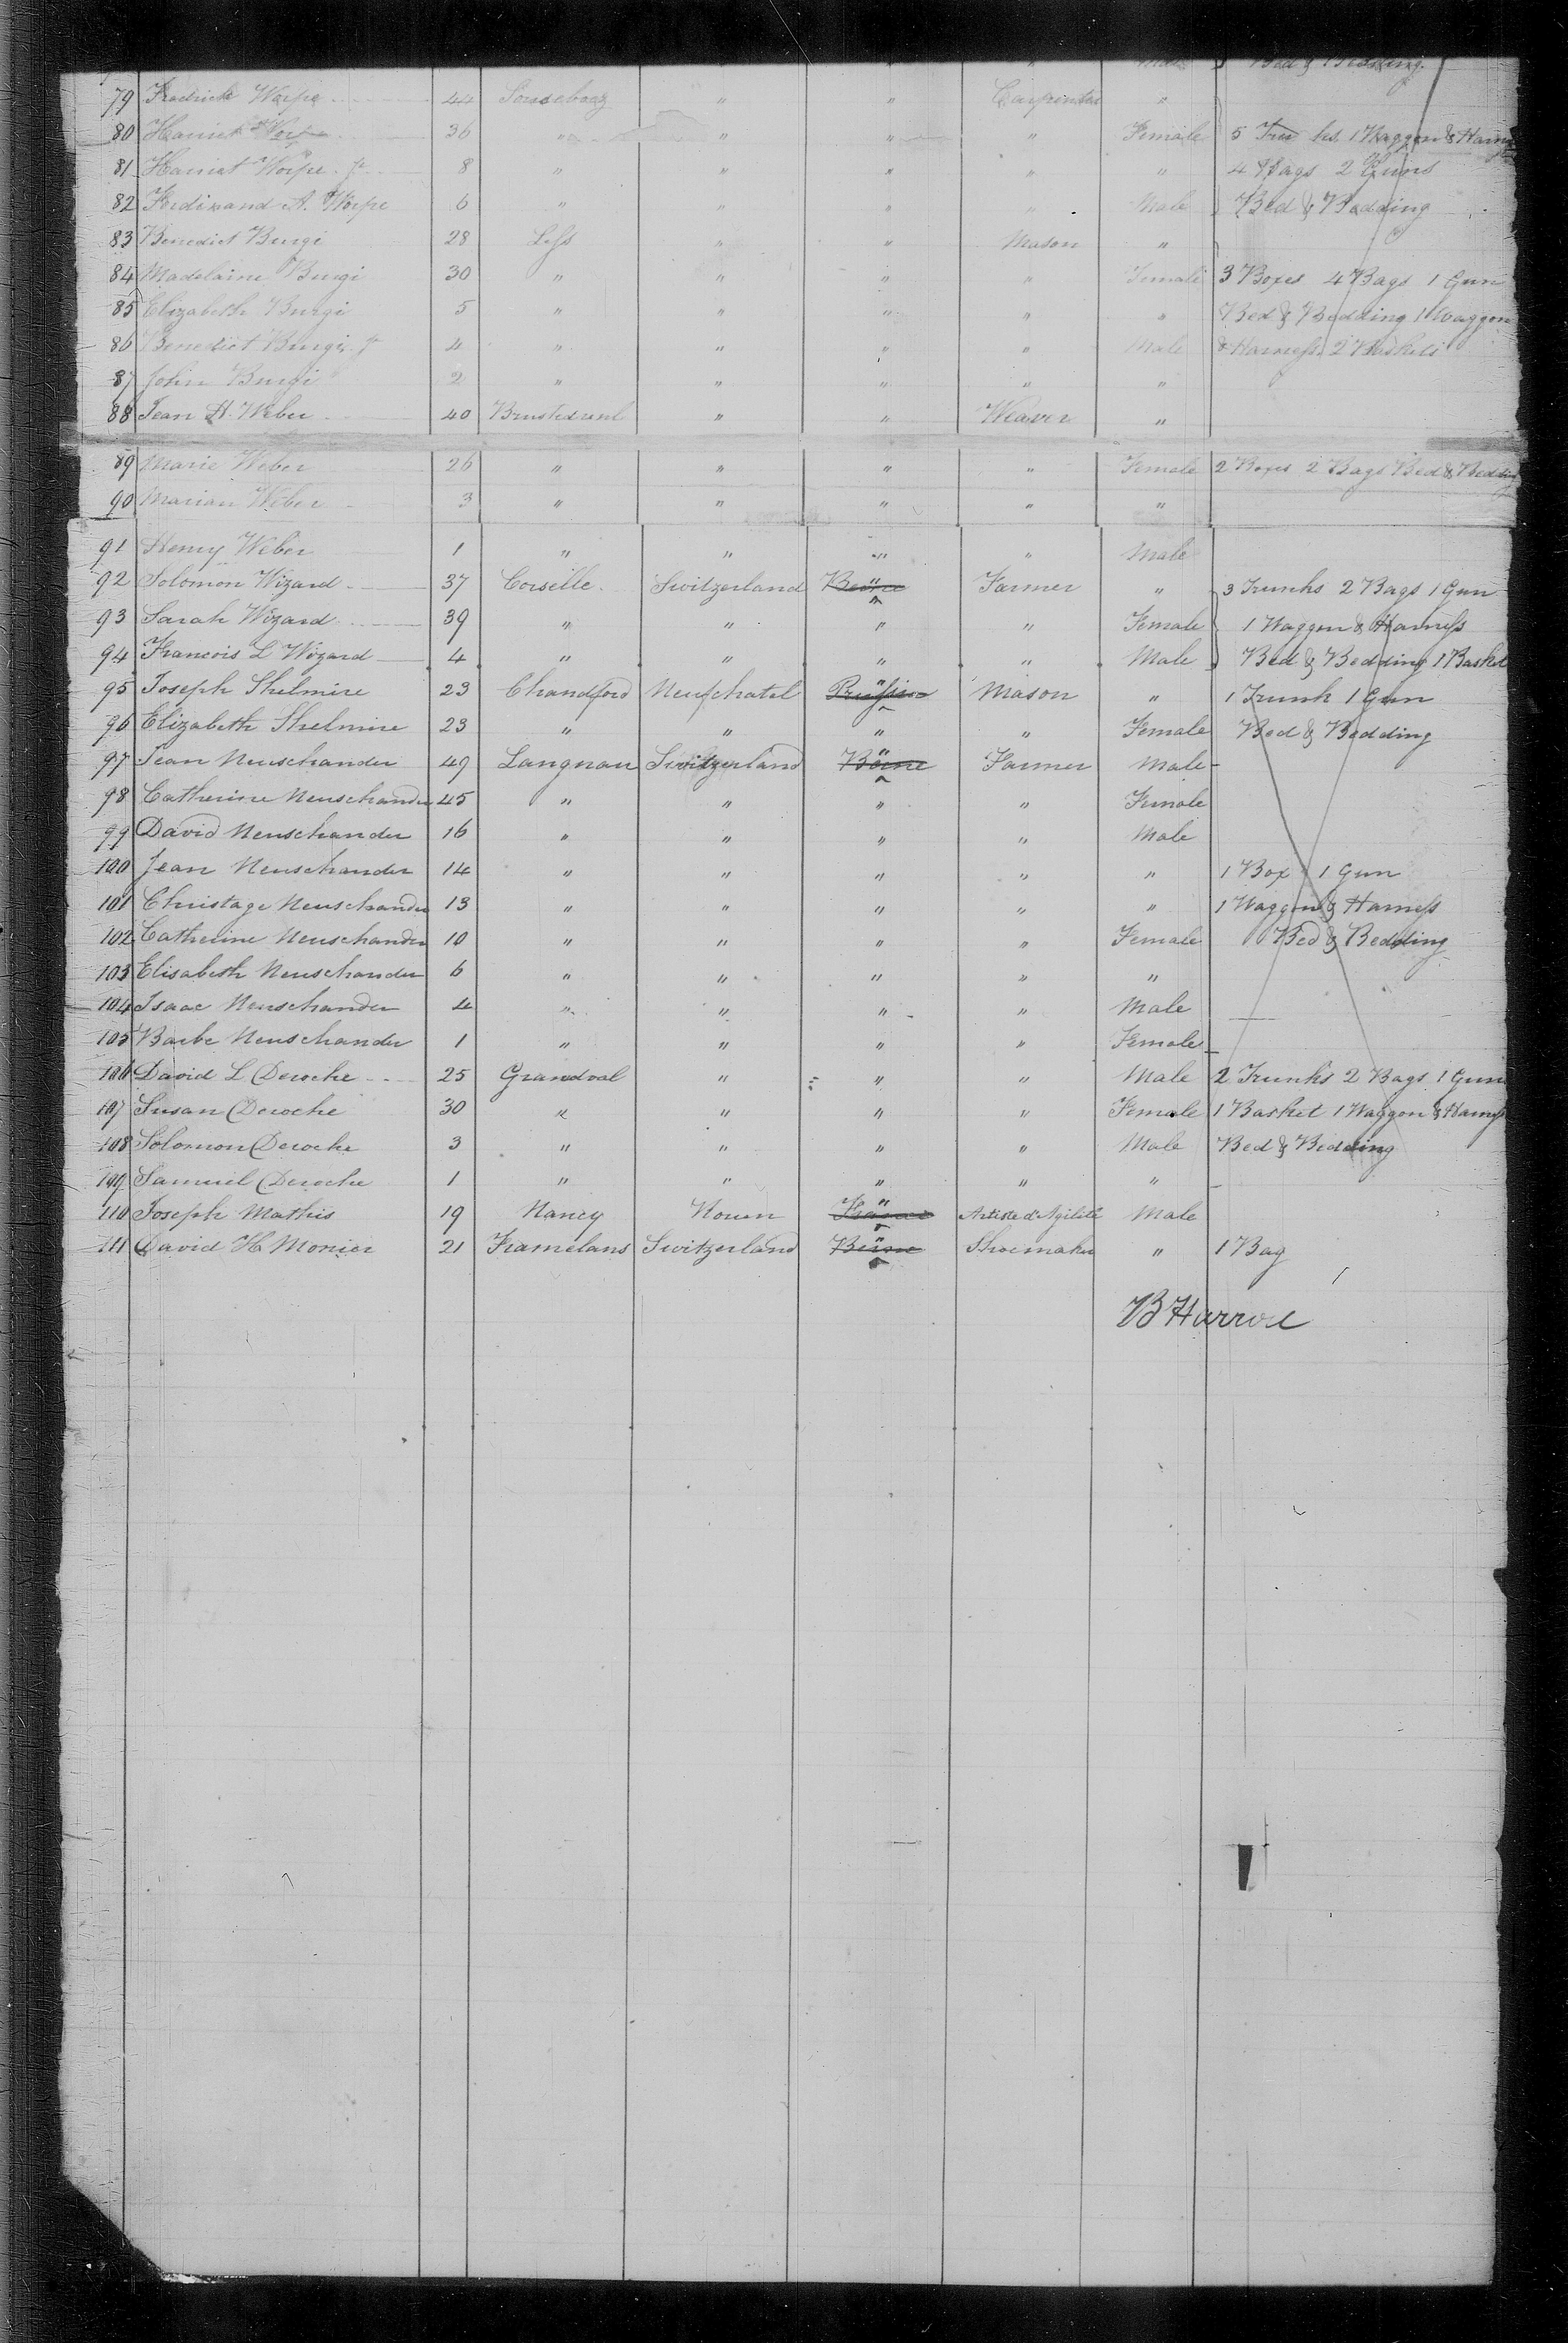 Bed & Bedding
79 Fredrick Worpe 44 Sonsebooz " " Carpenter "
80 Harriet Worpe 36 " " " " Female 5 Trunks 1 Waggon & Harness
81 Harriet Worpe Jr 8 " " " " " 4 Bags 2 Guns
82 Ferdinand A. Worpe 6 " " " " Male Bed & Bedding
83 Benedict Burgi 28 Lyss " " Mason "
84 Madelaine Burgi 30 " " " " Female 3 Boxes 4 Bags 1 Gun
85 Elizabeth Burgi 5 " " " " " Bed & Bedding 1 Waggon
86 Benedict Burgi Jr 4 " " " " Male & Harness 2 Baskets
87 John Burgi 2 " " " " "
88 Jean H. Weber 40 " " Weaver "
89 Marie Weber 26 " " " " Female 2 Boxes 2 Bags Bed & Bedding
90 Marian Weber 3 " " " " "
91 Henry Weber 1 " " " " Male
92 Solomon Wizard 37 Corselle Switzerland " Farmer " 3 Trunks 2 Bags 1 Gun
93 Sarah Wizard 39 " " " " Female 1 Waggon & Harness
94 Francois L Wizard 4 " " " " Male Bed & Bedding 1 Basket
95 Joseph Shelmire 23 Chandford Neufchatel " Mason " 1 Trunk 1 Gun
96 Elizabeth Shelmire 23 " " " " Female Bed & Bedding
97 Jean Neuschander 49 Langnau Switzerland " Farmer Male
98 Catherine Neuschander 45 " " " " Female
99 David Neuschander 16 " " " " Male
100 Jean Neuschander 14 " " " " " 1 Box 1 Gun
101 Christage Neuschander 13 " " " " " 1 Waggon & Harness
102 Catherine Neuschander 10 " " " " Female Bed & Bedding
103 Elisabeth Neuschander 6 " " " " "
104 Isaac Neuschander 4 " " " " Male
105 Barbe Neuschander 1 " " " " Female
106 David L Deroche 25 Grandval " " " Male 2 Trunks 2 Bags 1 Gun
107 Susan Deroche 30 " " " " Female 1 Basket 1 Waggon & Harness
108 Solomon Deroche 3 " " " " Male Bed & Bedding
109 Samuel Deroche 1 " " " " "
110 Joseph Mathis 19 Nancy Rouen " Artiste d'Agilité Male
111 David H Monier 21 Framelans Switzerland " Shoemaker " 1 Bag
B Harrod